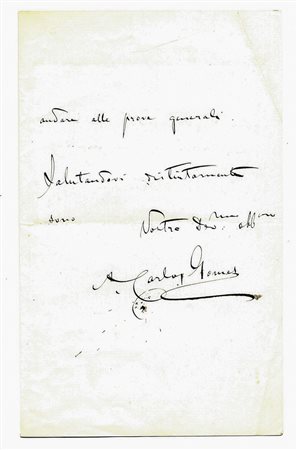 andare alle prove generali.
Salutandovi distintamente
sono Vostro Dev.mo obb.mo
A. Carlos Gomes